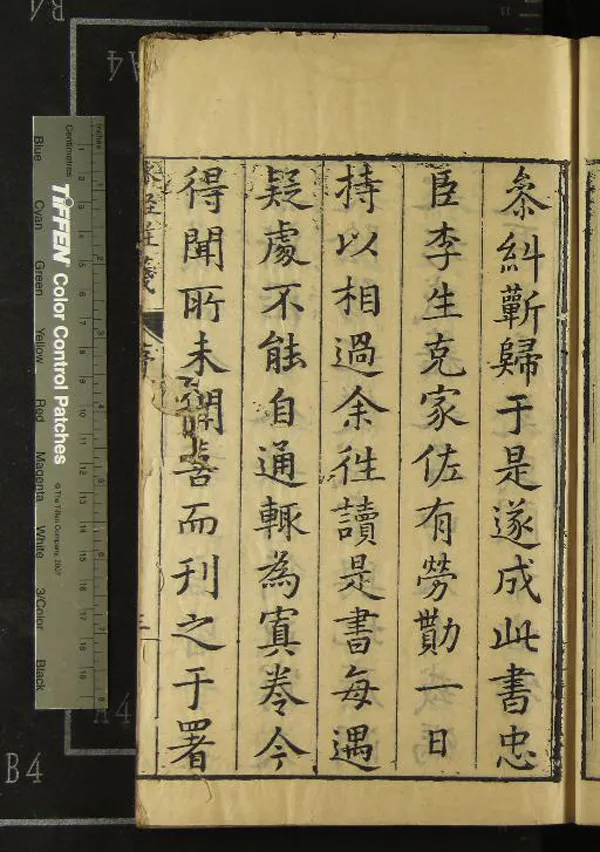 叅糾蘄歸于是遂成此書忠
臣李生克家佐有勞勩一日
持以相過余徃讀是書每遇
疑處不能自通輒為寘卷今
得聞所未聞喜而刊之于署
水經注箋
序
三
Inches
Centimetres
TIFFEN Color Control Patches
© The Tiffen Company, 2007
Blue Cyan Green Yellow Red Magenta White 3/Color Black
A4
B4
A4
B4